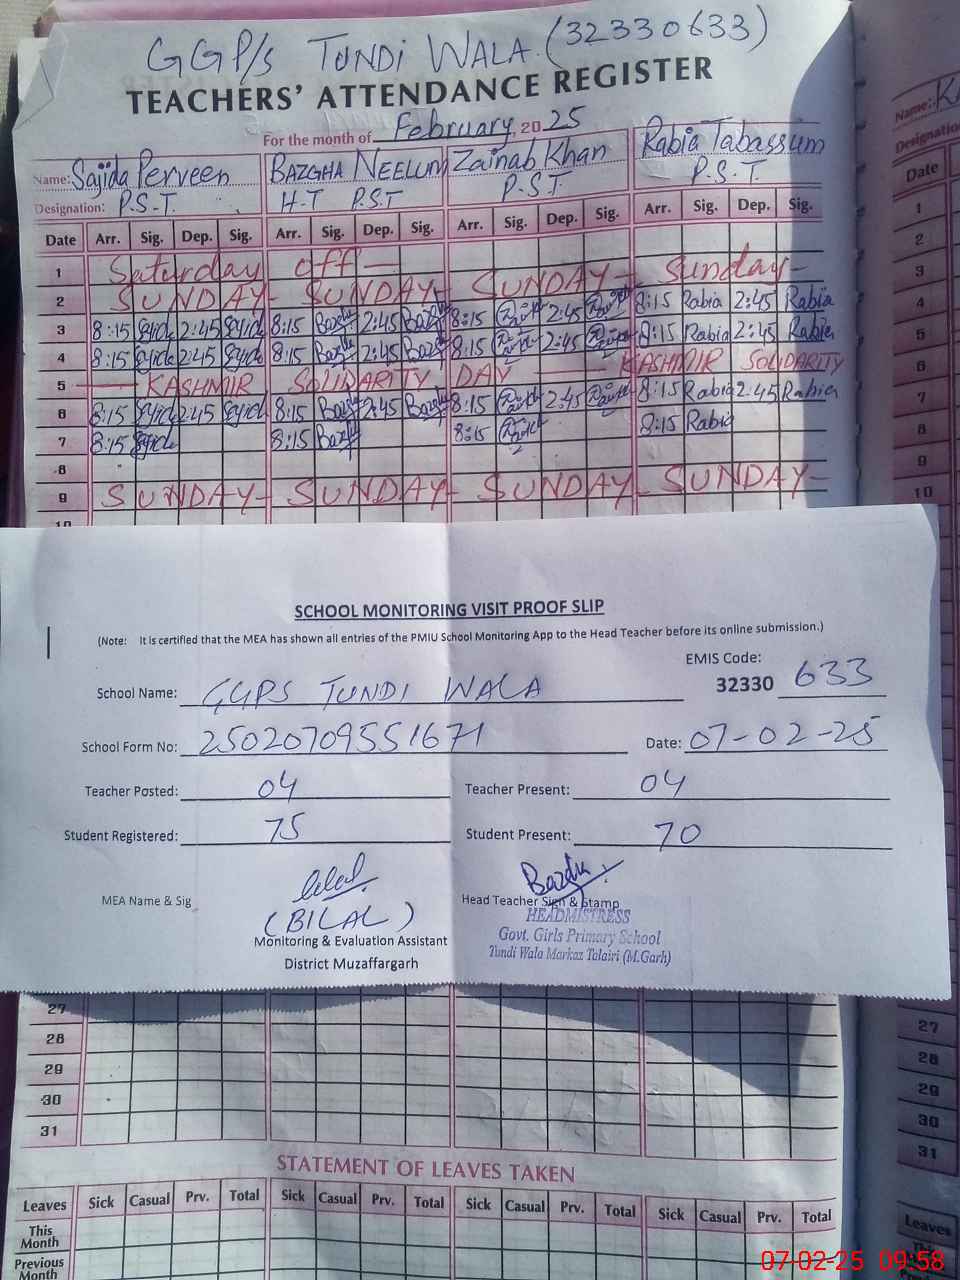 GGP/s TUNDI WALA (32330633)
TEACHERS' ATTENDANCE REGISTER
For the month of February, 2025
Name: Sajida Perveen BAZGHA NEELUM Zainab Khan Rabia Tabassum
Designation: P.S.T. H.T P.S.T P.S.T. P.S.T.
Date Arr. Sig. Dep. Sig. Arr. Sig. Dep. Sig. Arr. Sig. Dep. Sig. Arr. Sig. Dep. Sig.
1 Saturday off —
2 SUNDAY- SUNDAY- SUNDAY- Sunday-
3 8:15 2:45 8:15 2:45 8:15 2:45 8:15 Rabia 2:45 Rabia
4 8:15 2:45 8:15 2:45 8:15 2:45 8:15 Rabia 2:45 Rabia
5 — KASHMIR SOLIDARITY DAY — KASHMIR SOLIDARITY
6 8:15 2:45 8:15 2:45 8:15 2:45 8:15 Rabia 2:45 Rabia
7 8:15 8:15 8:15 8:15 Rabia
8
9 SUNDAY- SUNDAY- SUNDAY- SUNDAY-
10
SCHOOL MONITORING VISIT PROOF SLIP
(Note: It is certified that the MEA has shown all entries of the PMIU School Monitoring App to the Head Teacher before its online submission.)
EMIS Code:
School Name: GGPS TUNDI WALA 32330 633
School Form No: 25020709551671 Date: 07-02-25
Teacher Posted: 04 Teacher Present: 04
Student Registered: 75 Student Present: 70
MEA Name & Sig Bilal Head Teacher Sign & Stamp
(BILAL) HEADMISTRESS
Monitoring & Evaluation Assistant Govt. Girls Primary School
District Muzaffargarh Tundi Wala Markaz Talairi (M.Garh)
27
28
29
30
31
STATEMENT OF LEAVES TAKEN
Leaves Sick Casual Prv. Total Sick Casual Prv. Total Sick Casual Prv. Total Sick Casual Prv. Total
This Month
Previous Month
Name:-
Designation
Date
1
2
3
4
5
6
7
8
9
10
27
28
29
30
31
Leaves
07-02-25 09:58